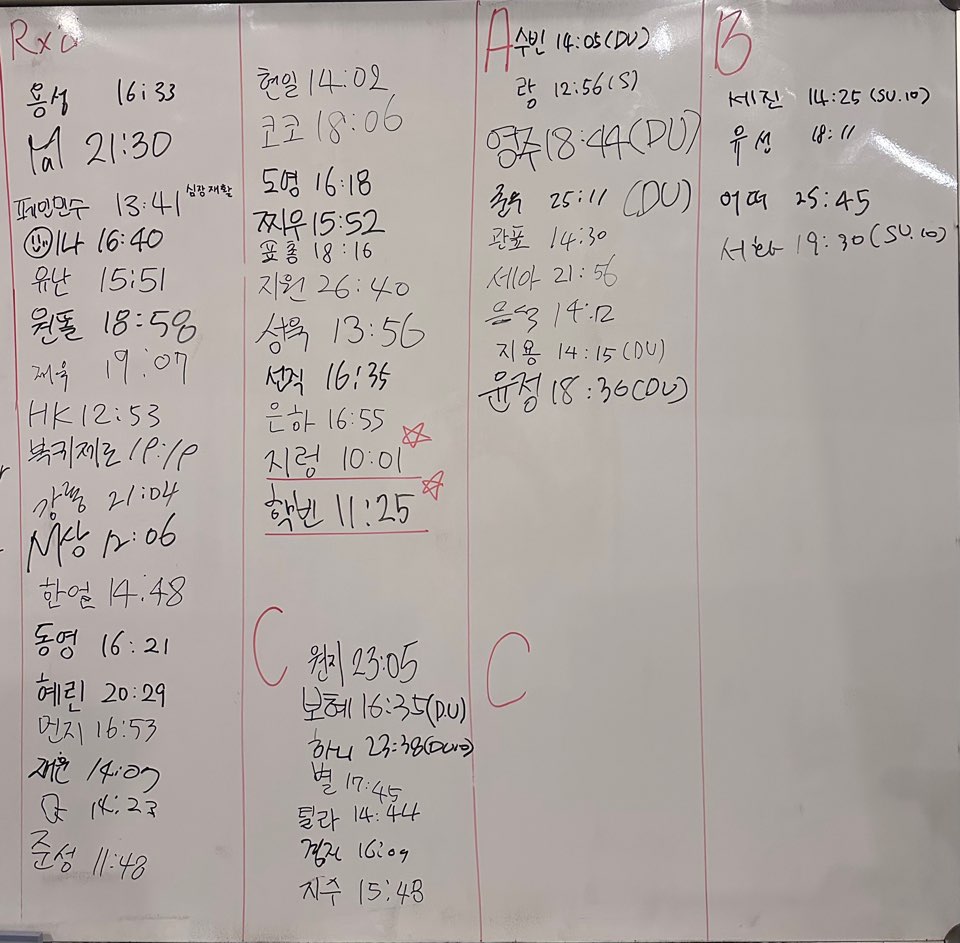 Rx'd
용성 16:33
21:30
페인민수 13:41 심장재활
나 16:40
유난 15:51
원돌 18:58
재욱 19:07
HK 12:53
복귀제로 19:19
21:04
M상 12:06
한얼 14:48
동영 16:21
혜린 20:29
먼지 16:53
재윤 14:09
14:23
준성 11:48
현일 14:02
코코 18:06
도영 16:18
찌우 15:52
표총 18:16
지원 26:40
성욱 13:56
선직 16:35
은하 16:55
지렁 10:01
학빈 11:25
C
원지 23:05
보혜 16:35(DU)
하니 23:38(DU10)
별 17:45
틸라 14:44
16:09
지수 15:48
A
수빈 14:05(DU)
랑 12:56(S)
영주 18:44(DU)
25:11 (DU)
관표 14:30
세아 21:56
은석 14:12
지용 14:15(DU)
윤정 18:36(DU)
C
B
세진 14:25(SU.10)
유성 18:11
어떠 25:45
서화 19:30(SU.10)